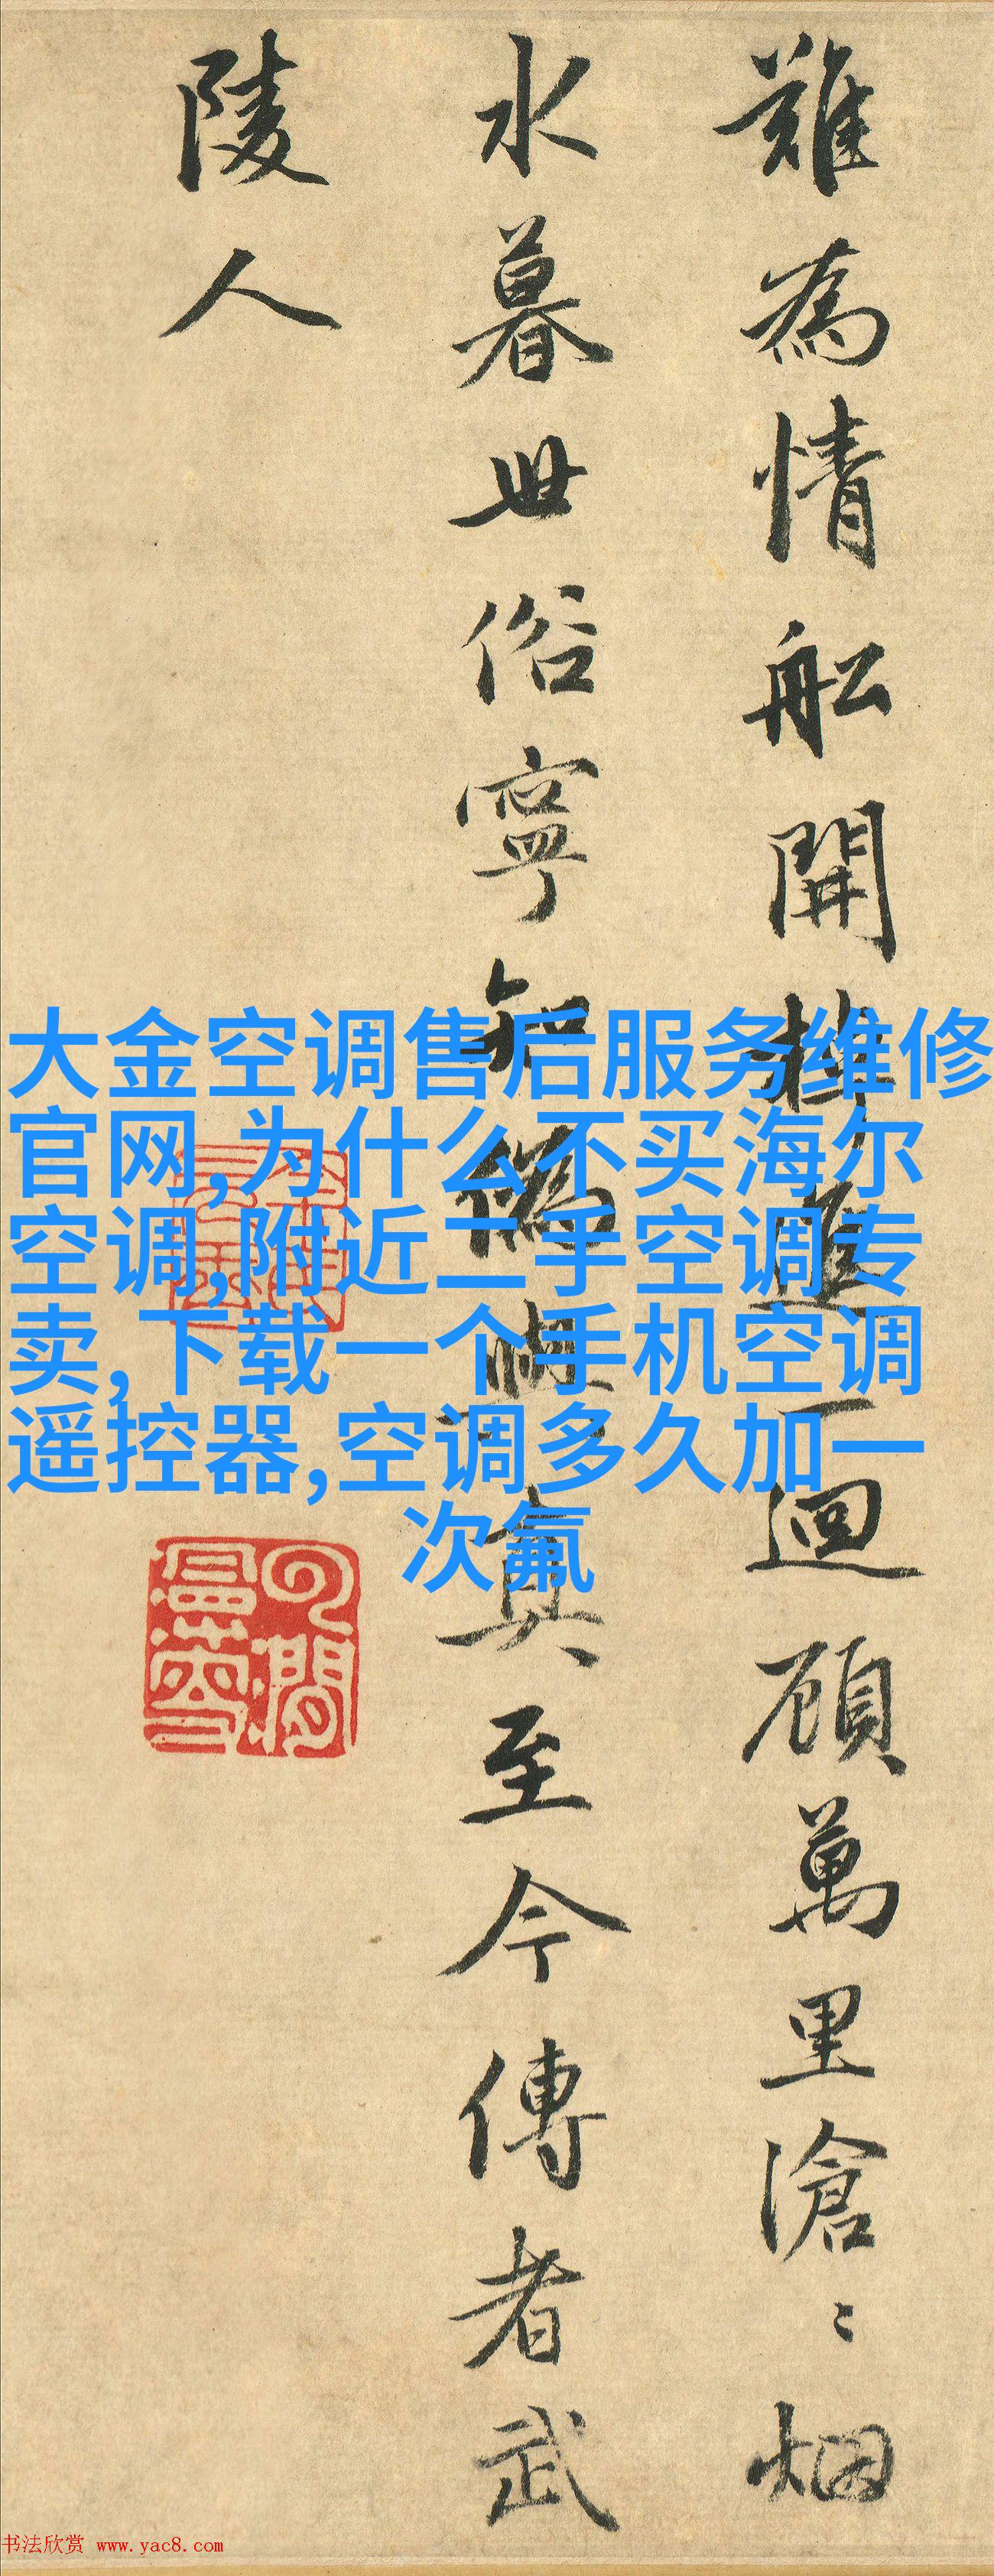 難為情舩開棹進一迴顧萬里滄〻烟
水暮世俗寧知偽與真至今傳者武
陵人
大金空调售后服务维修
官网,为什么不买海尔
空调,附近二手空调专
卖,下载一个手机空调
遥控器,空调多久加一
次氟
书法欣赏 www.yac8.com